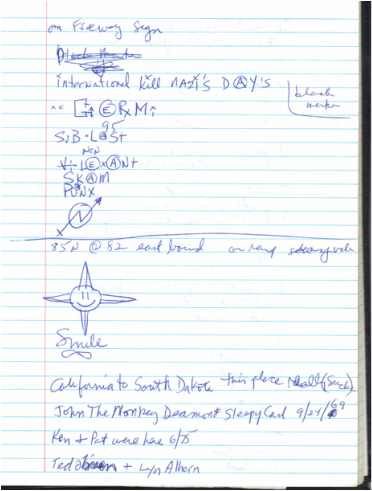 on Freeway Sign
international Kill NAZi'S DAY'S
black marker
GERMi
95
SUB·LOST
NCN
Vi·LEXANt
SKAM
PUNX
N
85N @ 82 east bound on many
Smile
California to South Dakota this place Really (Suck)
John The Monkey Deamon & Sleepy Carl 9/24/69
Ken & Pat were here 6/75
Ted + Lyn Alhorn